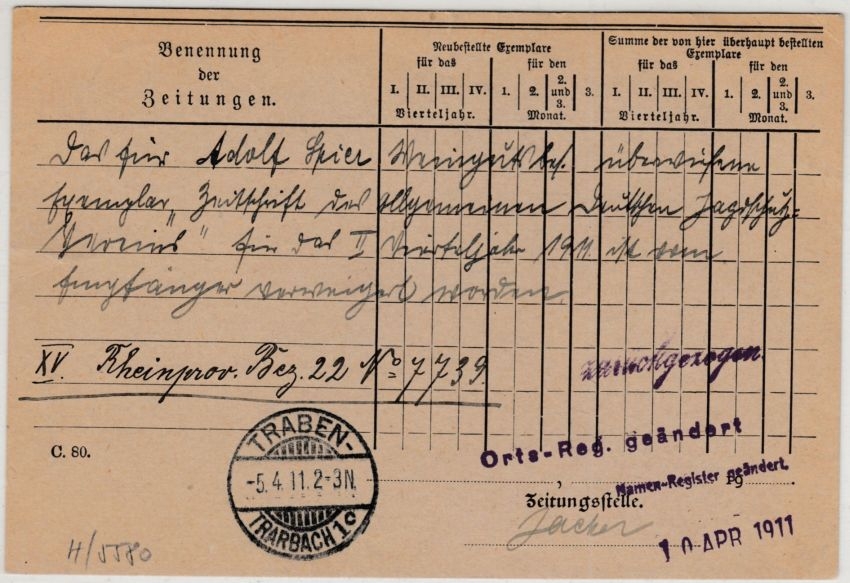 Benennung
der
Zeitungen.
Neubestellte Exemplare
für das
für den
I. II. III. IV. 1. 2. 2. und 3. 3.
Vierteljahr. Monat.
Summe der von hier überhaupt bestellten
Exemplare
für das
für den
I. II. III. IV. 1. 2. 2. und 3. 3.
Vierteljahr. Monat.
Das für Adolf Spier Weingutsbes. überwiesene
Exemplar „Zeitschrift des Allgemeinen Deutschen Jagdschutz-
Vereins" für das II Vierteljahr 1911 ist vom
Empfänger verweigert worden.
zurückgezogen
XV. Rheinprov. Bez. 22 No 7739.
Orts-Reg. geändert
C. 80.
TRABEN-
-5.4.11.2-3N.
TRARBACH 1c
Namen-Register geändert.
, 19
Zeitungsstelle.
10 APR 1911
H/5580